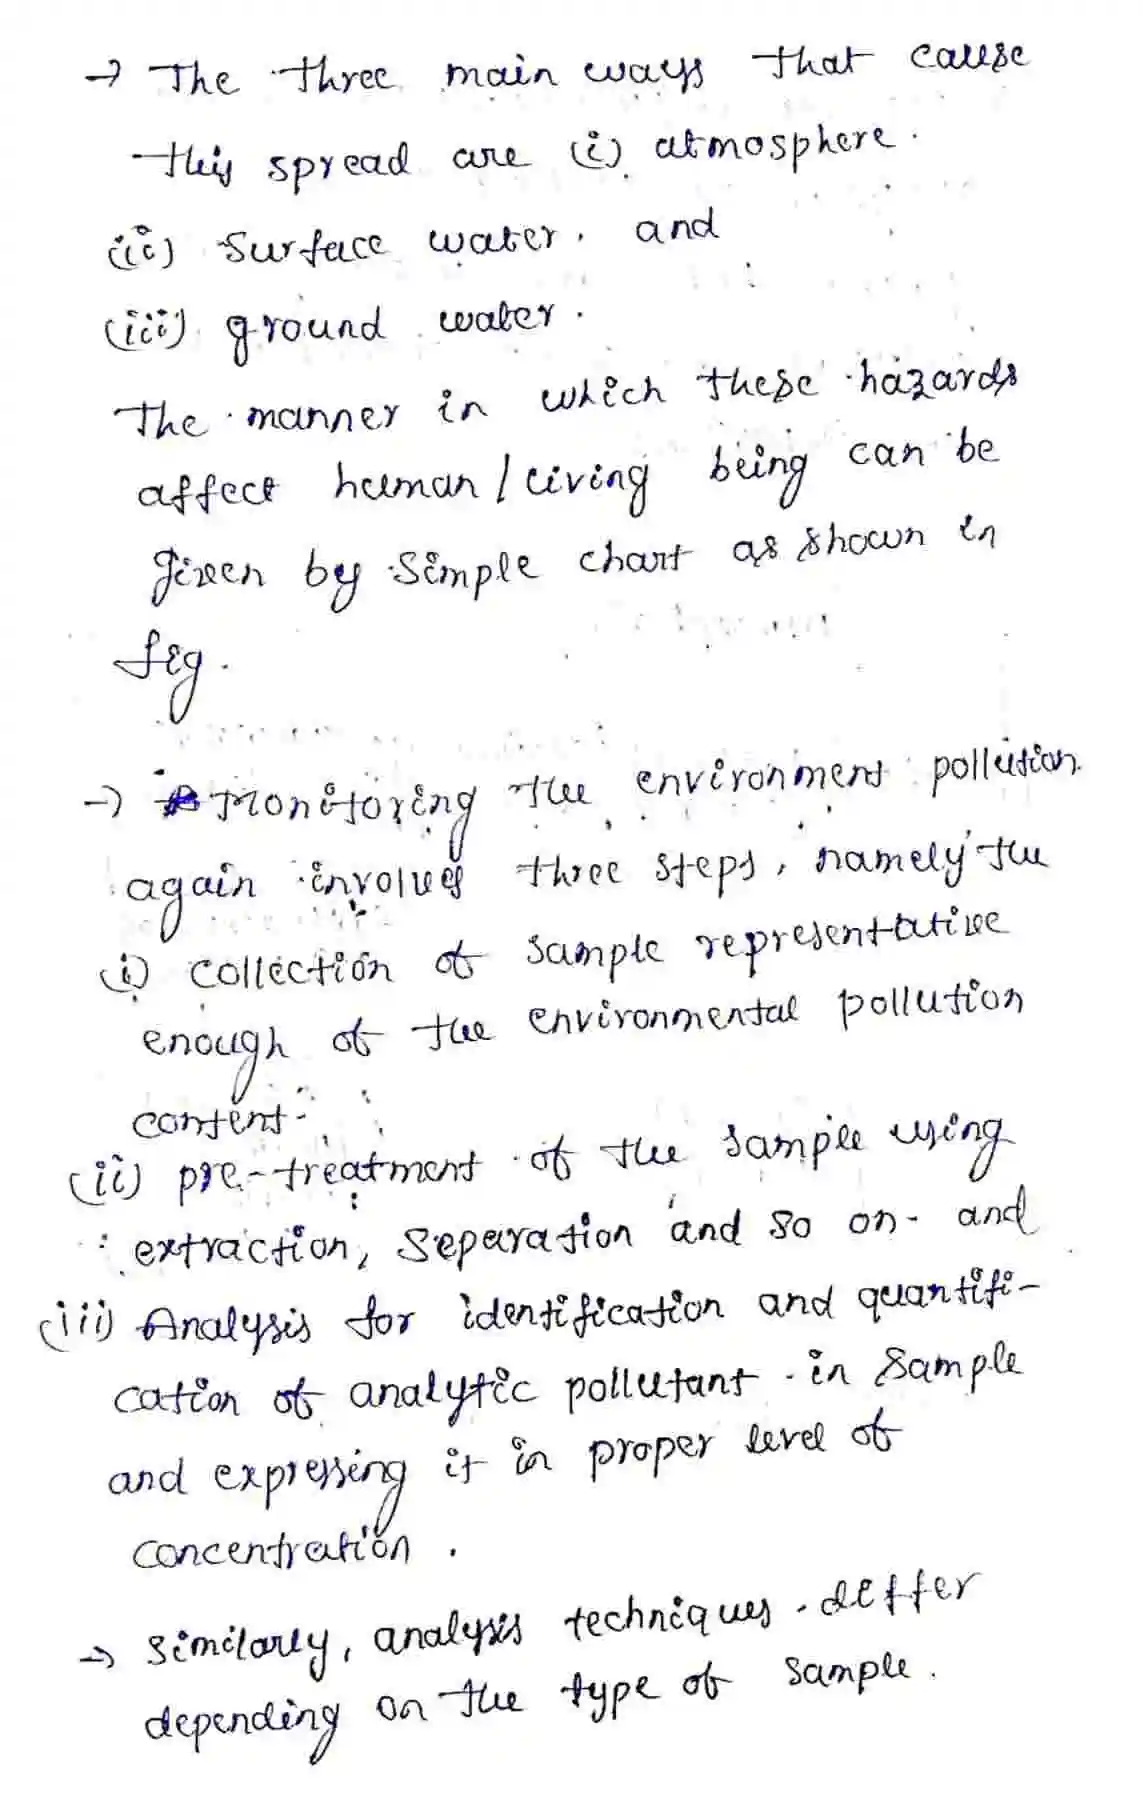 → The three main ways that cause
this spread are (i) atmosphere.
(ii) Surface water. and
(iii) ground water.
The manner in which these hazards
affect human/living being can be
given by simple chart as shown in
fig.
→ Monitoring the environment pollution
again involves three steps, namely the
(i) collection of sample representative
enough of the environmental pollution
content.
(ii) pre-treatment of the sample using
extraction, separation and so on. and
(iii) Analysis for identification and quantifi-
cation of analytic pollutant in sample
and expressing it in proper level of
concentration.
→ similarly, analysis techniques differ
depending on the type of sample.